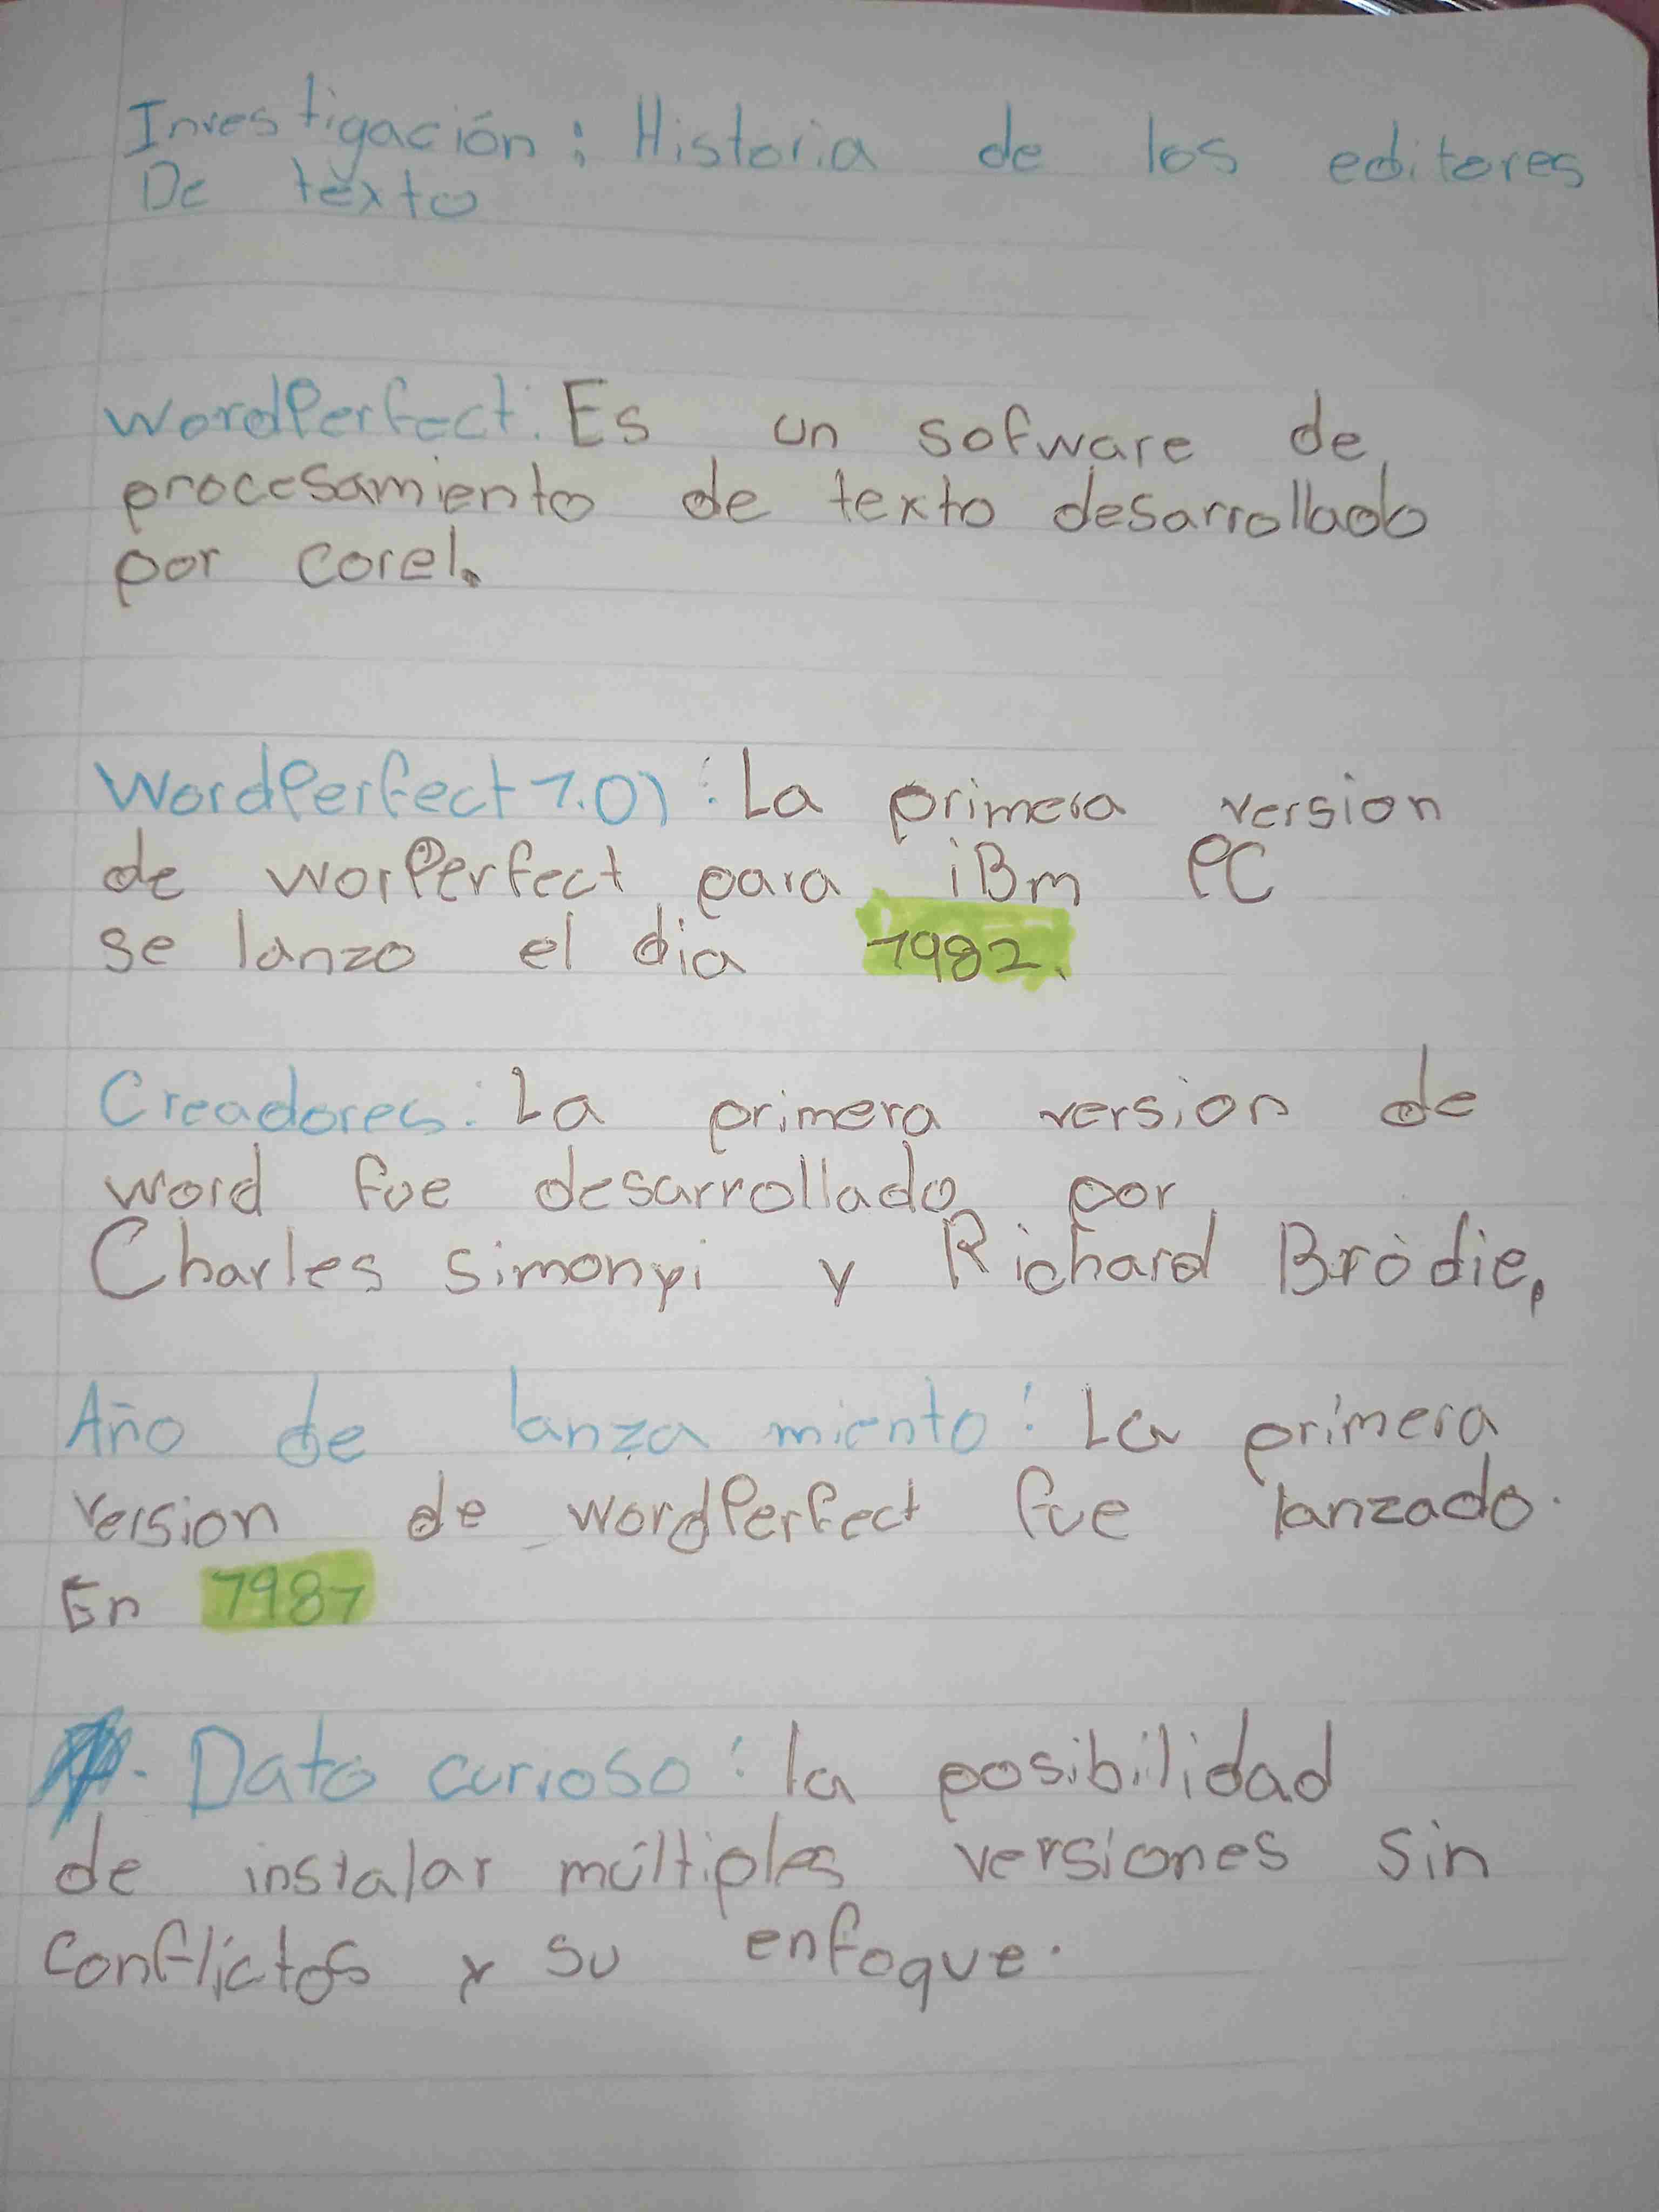 Investigación: Historia de los editores
De texto
WordPerfect: Es un sofware de
procesamiento de texto desarrollado
por corel.
WordPerfect 1.0): La primera version
de worPerfect para iBm PC
se lanzo el dia 1982.
Creadores: La primera version de
word fue desarrollado por
Charles simonyi y Richard Brodie,
Año de lanza miento: La primera
version de wordPerfect fue lanzado.
En 1981
Dato curioso: la posibilidad
de instalar múltiples versiones sin
conflictos y su enfoque.